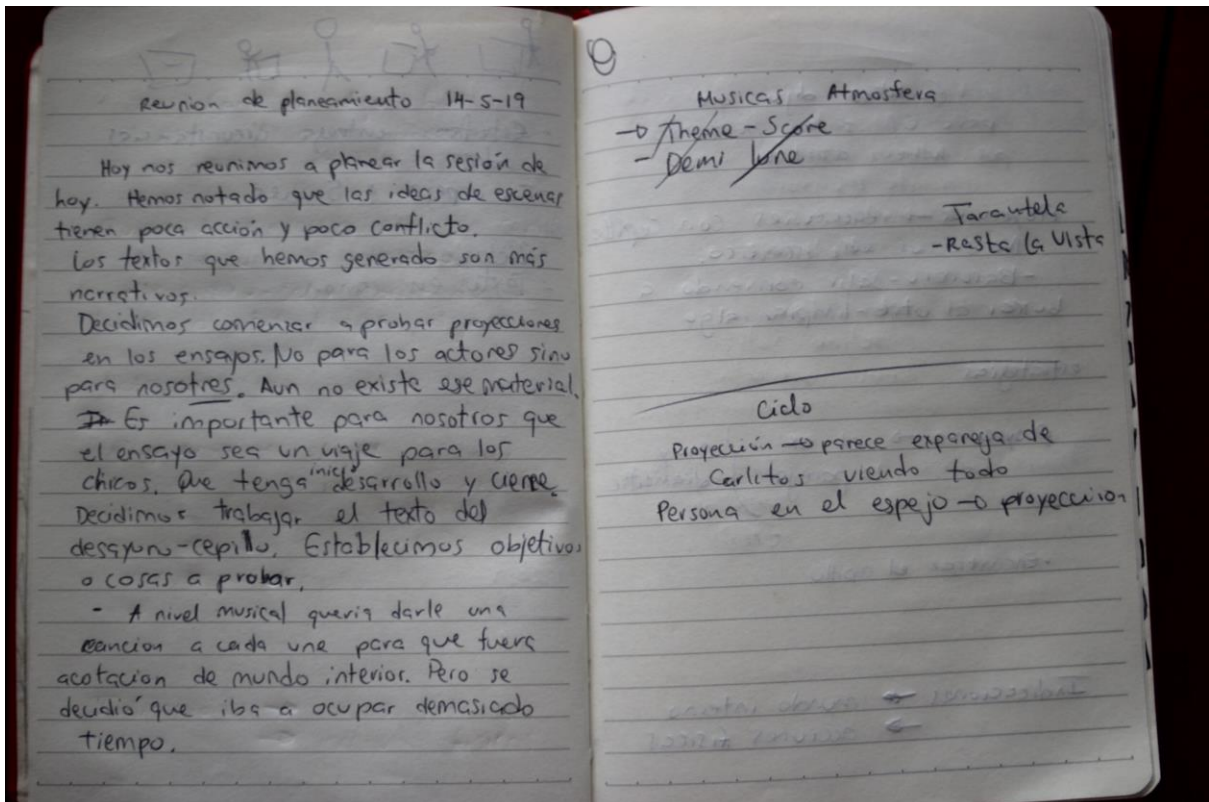 Reunion de planeamiento 14-5-19
Hoy nos reunimos a planear la sesión de
hoy. Hemos notado que las ideas de escenas
tienen poca acción y poco conflicto.
Los textos que hemos generado son más
narrativos.
Decidimos comenzar a probar proyecciones
en los ensayos. No para los actores sino
para nosotres. Aun no existe ese material.
Es importante para nosotros que
el ensayo sea un viaje para los
chicos. Que tenga inicio desarrollo y cierre.
Decidimos trabajar el texto del
desayuno-cepillo. Establecimos objetivos
o cosas a probar.
- A nivel musical queria darle una
cancion a cada une para que fuera
acotacion de mundo interior. Pero se
decidió que iba a ocupar demasiado
tiempo.
Musicas Atmosfera
→ Theme - Score
- Demi lune
Tarantela
- Resta la Vista
Ciclo
Proyección → parece expareja de
Carlitos viendo todo
Persona en el espejo → proyeccion